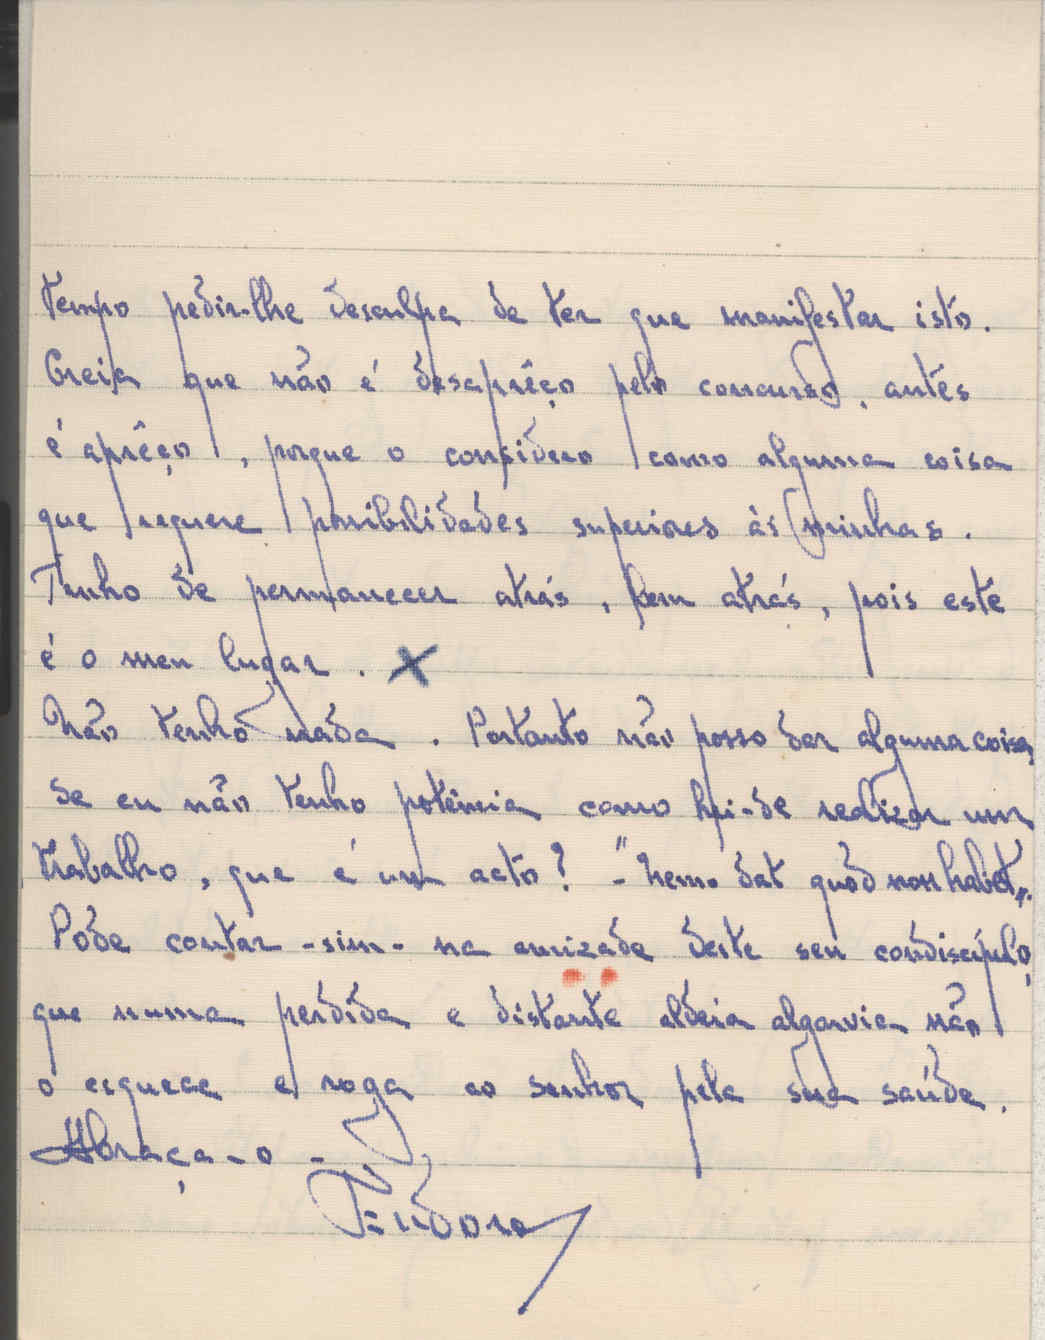 tempo pedir-lhe desculpa de ter que manifestar isto.
Creia que não é desaprêço pelo concurso, antes
é aprêço, porque o considero como alguma coisa
que requere possibilidades superiores às minhas.
Tenho de permanecer atrás, bem atrás, pois este
é o meu lugar. X
Não tenho nada. Portanto não posso dar alguma coisa,
Se eu não tenho potência como hei-de realizar um
trabalho, que é um acto? - "Nemo dat quod non habet".
Póde contar -sim- na amizade deste seu condiscípulo,
que numa perdida e distante aldeia algarvia não
o esquece e roga ao Senhor pela sua saúde.
Abraça-o -